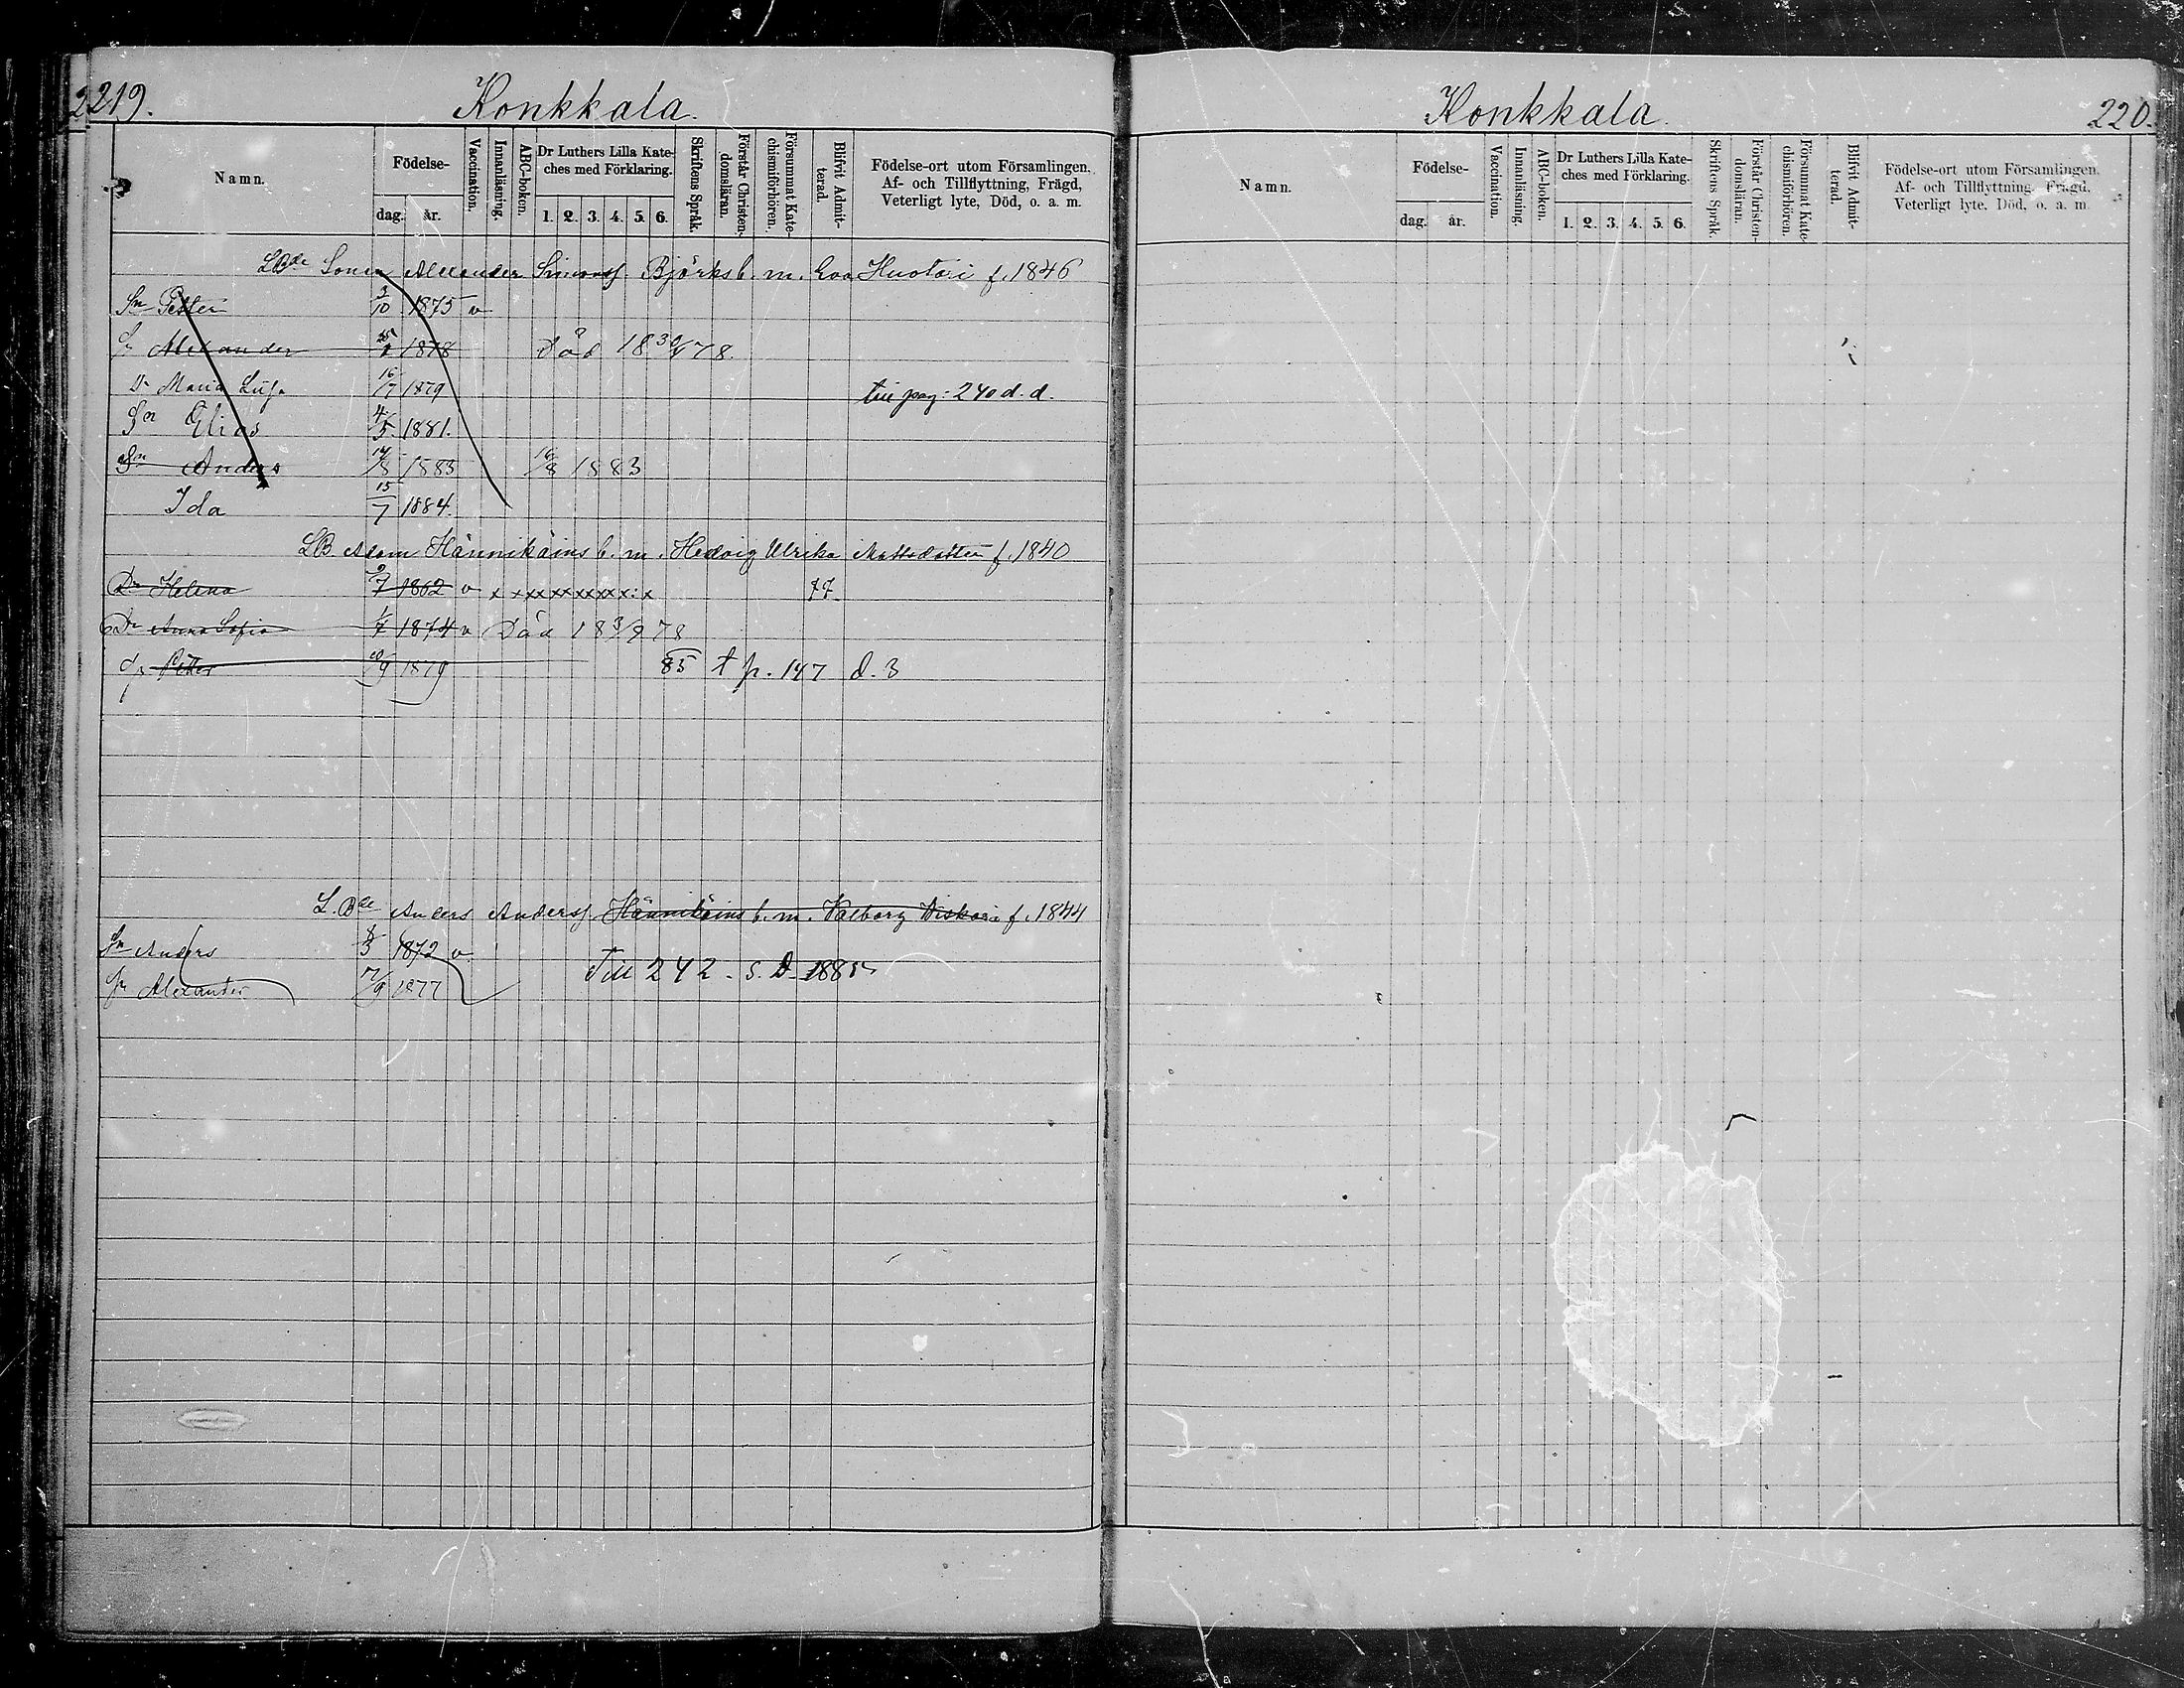 2219.
Konkkala.
Namn.
Födelse-
dag. år.
Vaccination.
Innanläsning.
ABC-boken.
Dr Luthers Lilla Kate-
ches med Förklaring.
1. 2. 3. 4. 5. 6.
Skriftens Språk.
Förstår Christen-
domsläran.
Försummat Kate-
chismiförhören.
Blifvit Admit-
terad.
Födelse-ort utom Församlingen.
Af- och Tillflyttning, Frägd,
Veterligt lyte, Död, o. a. m.
LBde Sonen Alexander Simonss. Björks b. m. Eva Huotari f. 1846
Sn Petter 3/10 1875 v
Sn Alexander 1878 Död 18 30/ 78.
Dr Maria Liisa 16/7 1879 till pag: 240 d. d.
Son Elias 4/5 1881.
Son Anders 14/8 1883 16/8 1883
Ida 15/7 1884.
LB Adam Hännikäins b. m. Hedvig Ulrika Mattsdotter f. 1840
Dr Helena 2/7 1862 v x x x x x x x x x : x 77
Dr Anna Sofia 1874 v Död 18 3/9 78
Sn Petter 10/9 1879 85 t p. 147 d. 3
L. Bde Anders Anderss. Hännikäins b. m. Valborg f. 1844
Sn Anders 8/3 1872 v
Till 242. S. D. 1885
Sn Alexander 7/9 1877
Konkkala.
220.
Namn.
Födelse-
dag. år.
Vaccination.
Innanläsning.
ABC-boken.
Dr Luthers Lilla Kate-
ches med Förklaring.
1. 2. 3. 4. 5. 6.
Skriftens Språk.
Förstår Christen-
domsläran.
Försummat Kate-
chismiförhören.
Blifvit Admit-
terad.
Födelse-ort utom Församlingen.
Af- och Tillflyttning. Frägd.
Veterligt lyte. Död, o. a. m.